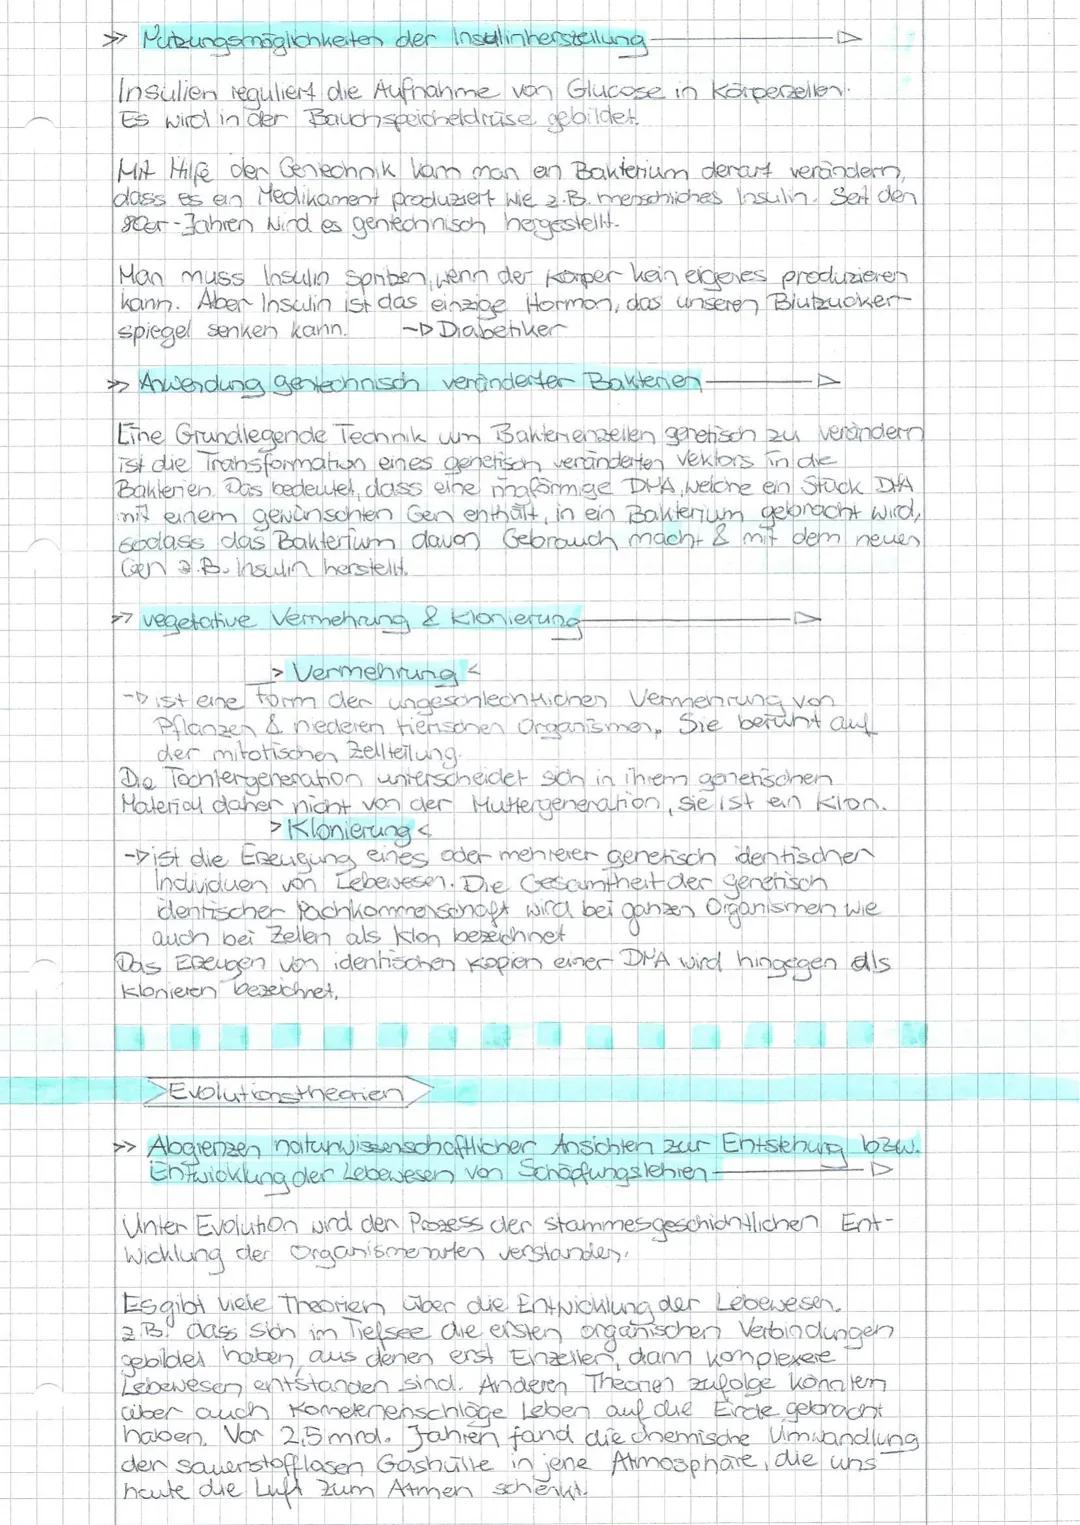 >> Nutzungsmöglichkeiten der Insulinherstellung
Insulien reguliert die Aufnahme von Glucose in Körperzellen.
Es wird in der Bauchspeicheldrüse gebildet.
Mit Hilfe der Gentechnik kann man ein Bakterium derart verändern,
dass es ein Medikament produziert wie z.B. menschliches Insulin. Seit den
80er-Jahren wird es gentechnisch hergestellt.
Man muss Insulin spritzen, wenn der Körper kein eigenes produzieren
kann. Aber Insulin ist das einzige Hormon, das unseren Blutzucker-
spiegel senken kann. -> Diabetiker
>> Anwendung gentechnisch veränderter Bakterien
Eine Grundlegende Technik um Bakterienzellen genetisch zu verändern
ist die Transformation eines genetisch veränderten Vektors in die
Bakterien. Das bedeutet, dass eine ringförmige DNA, welche ein Stück DNA
mit einem gewünschten Gen enthält, in ein Bakterium gebracht wird,
sodass das Bakterium davon Gebrauch macht & mit dem neuen
Gen z.B. Insulin herstellt.
>> vegetative Vermehrung & Klonierung
> Vermehrung <
-> ist eine Form der ungeschlechtlichen Vermehrung von
Pflanzen & niederen tierischen Organismen. Sie beruht auf
der mitotischen Zellteilung.
Die Tochtergeneration unterscheidet sich in ihrem genetischen
Material daher nicht von der Muttergeneration, sie ist ein Klon.
> Klonierung <
-> ist die Erzeugung eines oder mehrerer genetisch identischer
Individuen von Lebewesen. Die Gesamtheit der genetisch
identischer Nachkommenschaft wird bei ganzen Organismen wie
auch bei Zellen als Klon bezeichnet
Das Erzeugen von identischen Kopien einer DNA wird hingegen als
klonieren bezeichnet.
Evolutionstheorien
>> Abgrenzen naturwissenschaftlicher Ansichten zur Entstehung bzw.
Entwicklung der Lebewesen von Schöpfungslehren
Unter Evolution wird der Prozess der stammesgeschichtlichen Ent-
wicklung der Organismenarten verstanden.
Es gibt viele Theorien über die Entwicklung der Lebewesen.
z.B. dass sich im Tiefsee die ersten organischen Verbindungen
gebildet haben, aus denen erst Einzeller, dann komplexere
Lebewesen entstanden sind. Anderen Theorien zufolge könnten
aber auch Kometeneinschläge Leben auf die Erde gebracht
haben. Vor 2,5 mrd. Jahren fand die chemische Umwandlung
der sauerstofflosen Gashülle in jene Atmosphäre, die uns
heute die Luft zum Atmen schenkt.